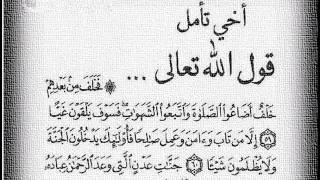 أخي تأمل
قول الله تعالى ...
۞ فَخَلَفَ مِنۢ بَعۡدِهِمۡ
خَلۡفٌ أَضَاعُواْ ٱلصَّلَوٰةَ وَٱتَّبَعُواْ ٱلشَّهَوَٰتِۖ فَسَوۡفَ يَلۡقَوۡنَ غَيًّا
٥٩ إِلَّا مَن تَابَ وَءَامَنَ وَعَمِلَ صَٰلِحٗا فَأُوْلَٰٓئِكَ يَدۡخُلُونَ ٱلۡجَنَّةَ
وَلَا يُظۡلَمُونَ شَيۡـٔٗا ٦٠ جَنَّٰتِ عَدۡنٍ ٱلَّتِي وَعَدَ ٱلرَّحۡمَٰنُ عِبَادَهُۥ